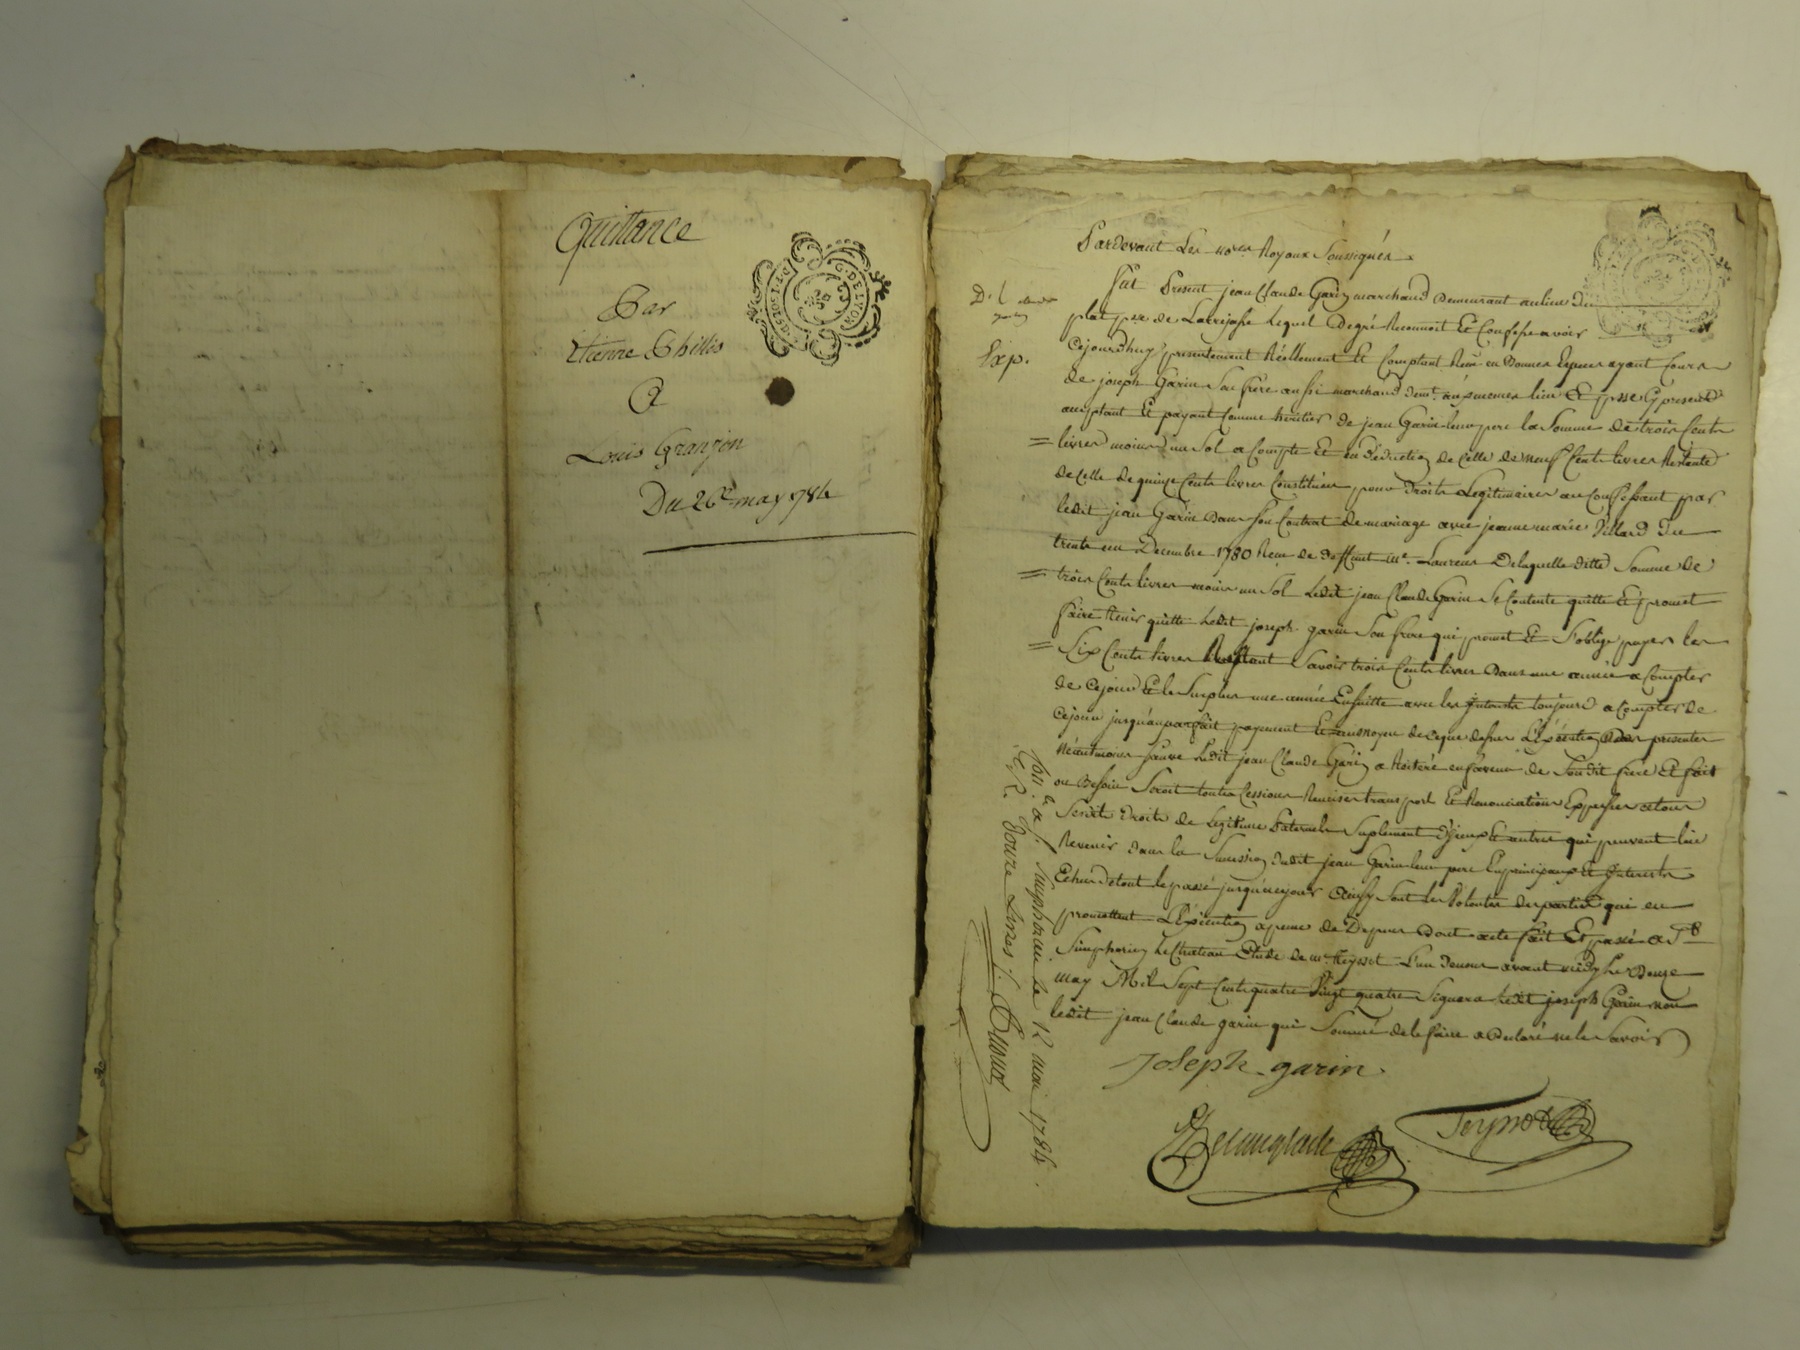 Quittance
G. DE LYON
Par
Etienne Thillis
A
Louis Granjon
Du 26e may 784
Pardevant Les nores Royaux Soussignés
Fut Present jean Claude Garin marchand Demeurant au lieu du
plat psse de Larajasse Lequel Degré Reconnoit Et Confesse avoir
Exp.
Cejourdhuy presentement Réellement Et Comptant Reçu en Bonnes Especes ayant Cours
de joseph Garin Son frere aussi marchand demt. au même lieu Et psse Cy present
acceptant Et payant Comme heritier de jean Garin leur pere la Somme de trois Cents
livres moins un Sol a Compte Et en Deduction de Celle de neuf Cents livres Restante
de Celle de quinze Cents livres Constituée pour Droits Legitimaires au Confessant par
ledit jean Garin Dans son Contrat de mariage avec jeanne marie Villard Du
trente un Decembre 1780 Reçu de Deffunt me. Laurens De laquelle ditte Somme de
trois Cents livres moins un Sol Ledit jean Claude Garin Se Contente quitte Et promet
faire tenir quitte Ledit joseph garin Son frere qui promet Et S'oblige payer les
Six Cents livres Restant Savoir trois Cents livres Dans une année a Compter
de Cejour Et le Surplus une année Ensuitte avec les Interets toujours a Compter de
Cejour jusqu'au parfait payement Et au moyen de Ceque dessus L'Execution Des presentes
Néantmoins Sauve Ledit jean Claude Garin a Reiteré en faveur de Son dit frere Et fait
ou Besoin Seroit toutes Cessions Remises transport Et Renonciations Expresses a tous
Sesdits Droits de Legitime Paternels Suplement d'yceux Et autres qui peuvent lui
Revenir dans la Succession dudit jean Garin leur pere En principaux Et Interets
Echus de tout le passé jusqu'à cejour Ainsy Sont les Volontés des parties qui en
promettent L'Execution a peine de Depens Dont acte fait Et passé a St
Simphorien Le Chateau Etude de me Teyssot L'un denous avant midy Le Douze
may Mil Sept Cents quatre Vingt quatre Signera Ledit joseph Garin non
ledit jean Claude garin qui Sommé de le faire a Declaré ne le Savoir
Joseph garin
Con. à St. Simphorien le 12 mai 1784.
R. douze Livres